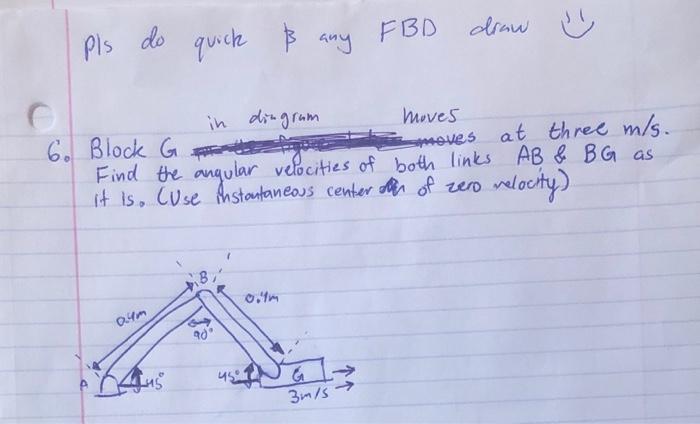 Pls do quick & any FBD draw
in diagram moves
6. Block G moves at three m/s.
Find the angular velocities of both links AB & BG as
it is. (Use instantaneous center of zero velocity)
B
0.4m 0.4m
90°
A 45° 45° G
3m/s